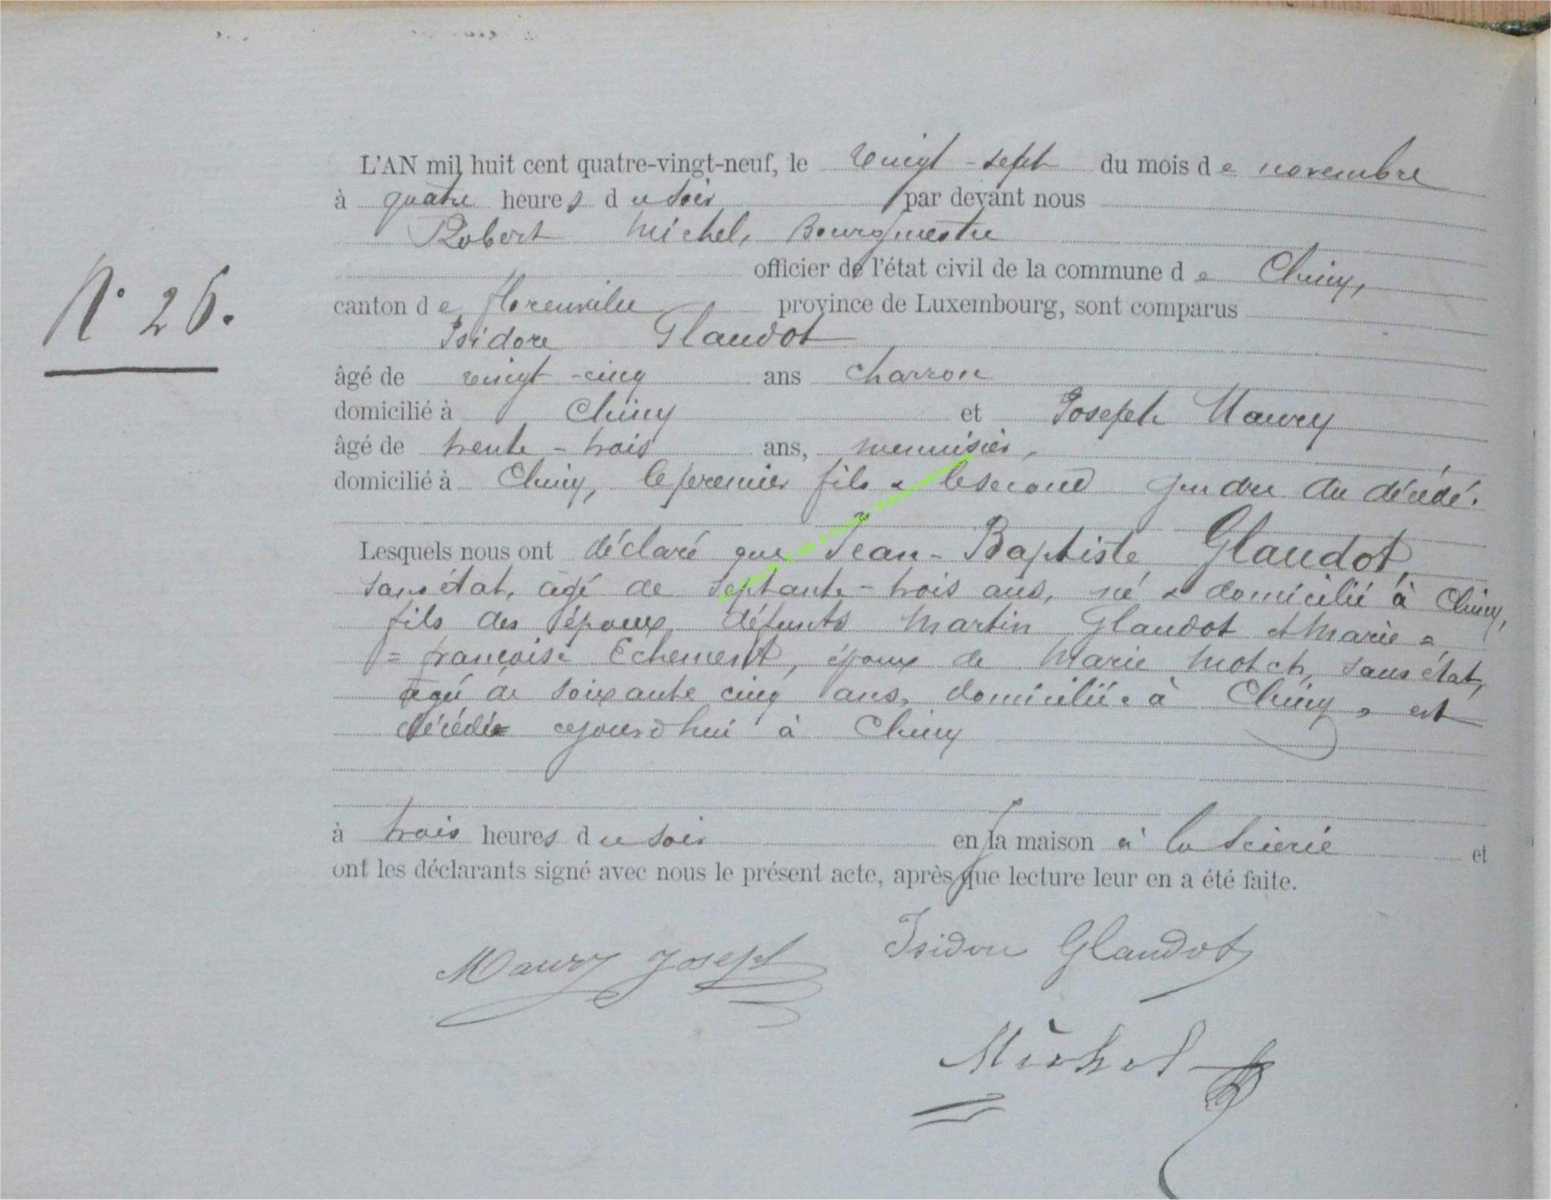 L'AN mil huit cent quatre-vingt-neuf, le vingt-sept du mois de novembre
à quatre heures du soir par devant nous
Robert Michel, Bourgmestre
officier de l'état civil de la commune de Chiny,
N° 26.
canton de florenville province de Luxembourg, sont comparus
Isidore Glaudot
âgé de vingt-cinq ans charron
domicilié à Chiny et Joseph Maury
âgé de trente-trois ans, menuisier,
domicilié à Chiny, le premier fils & le second gendre du décédé.
Lesquels nous ont déclaré que Jean-Baptiste Glaudot,
sans état, âgé de septante-trois ans, né & domicilié à Chiny,
fils des époux défunts Martin Glaudot et Marie =
= françoise Echement, époux de Marie Motch, sans état,
agée de soixante cinq ans, domiciliée à Chiny, est
décédé cejourd'hui à Chiny
à trois heures du soir en la maison à la Scierie et
ont les déclarants signé avec nous le présent acte, après que lecture leur en a été faite.
Maury Joseph Isidore Glaudot
Michel